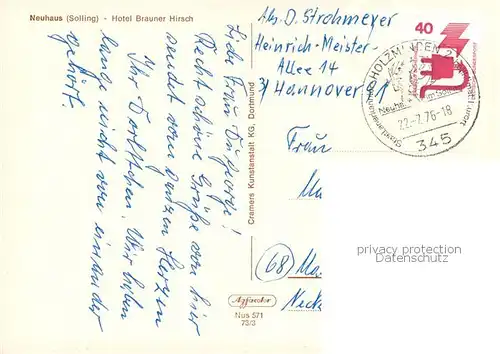 Neuhaus (Solling) - Hotel Brauner Hirsch
Abs. D. Strohmeyer
Heinrich-Meister-
Allee 14
3) Hannover 91
40
HOLZMINDEN 2
22.-7.76-18
345
Liebe Frau
Recht schöne Grüße von hier
sendet von ganzem Herzen
Ihr Wir haben
lange nicht von einander
gehört.
Cramers Kunstanstalt KG, Dortmund
Frau
Ma
(68) Ma
Neck
privacy protection
watermark
Agfacolor
Nus 571
73/3